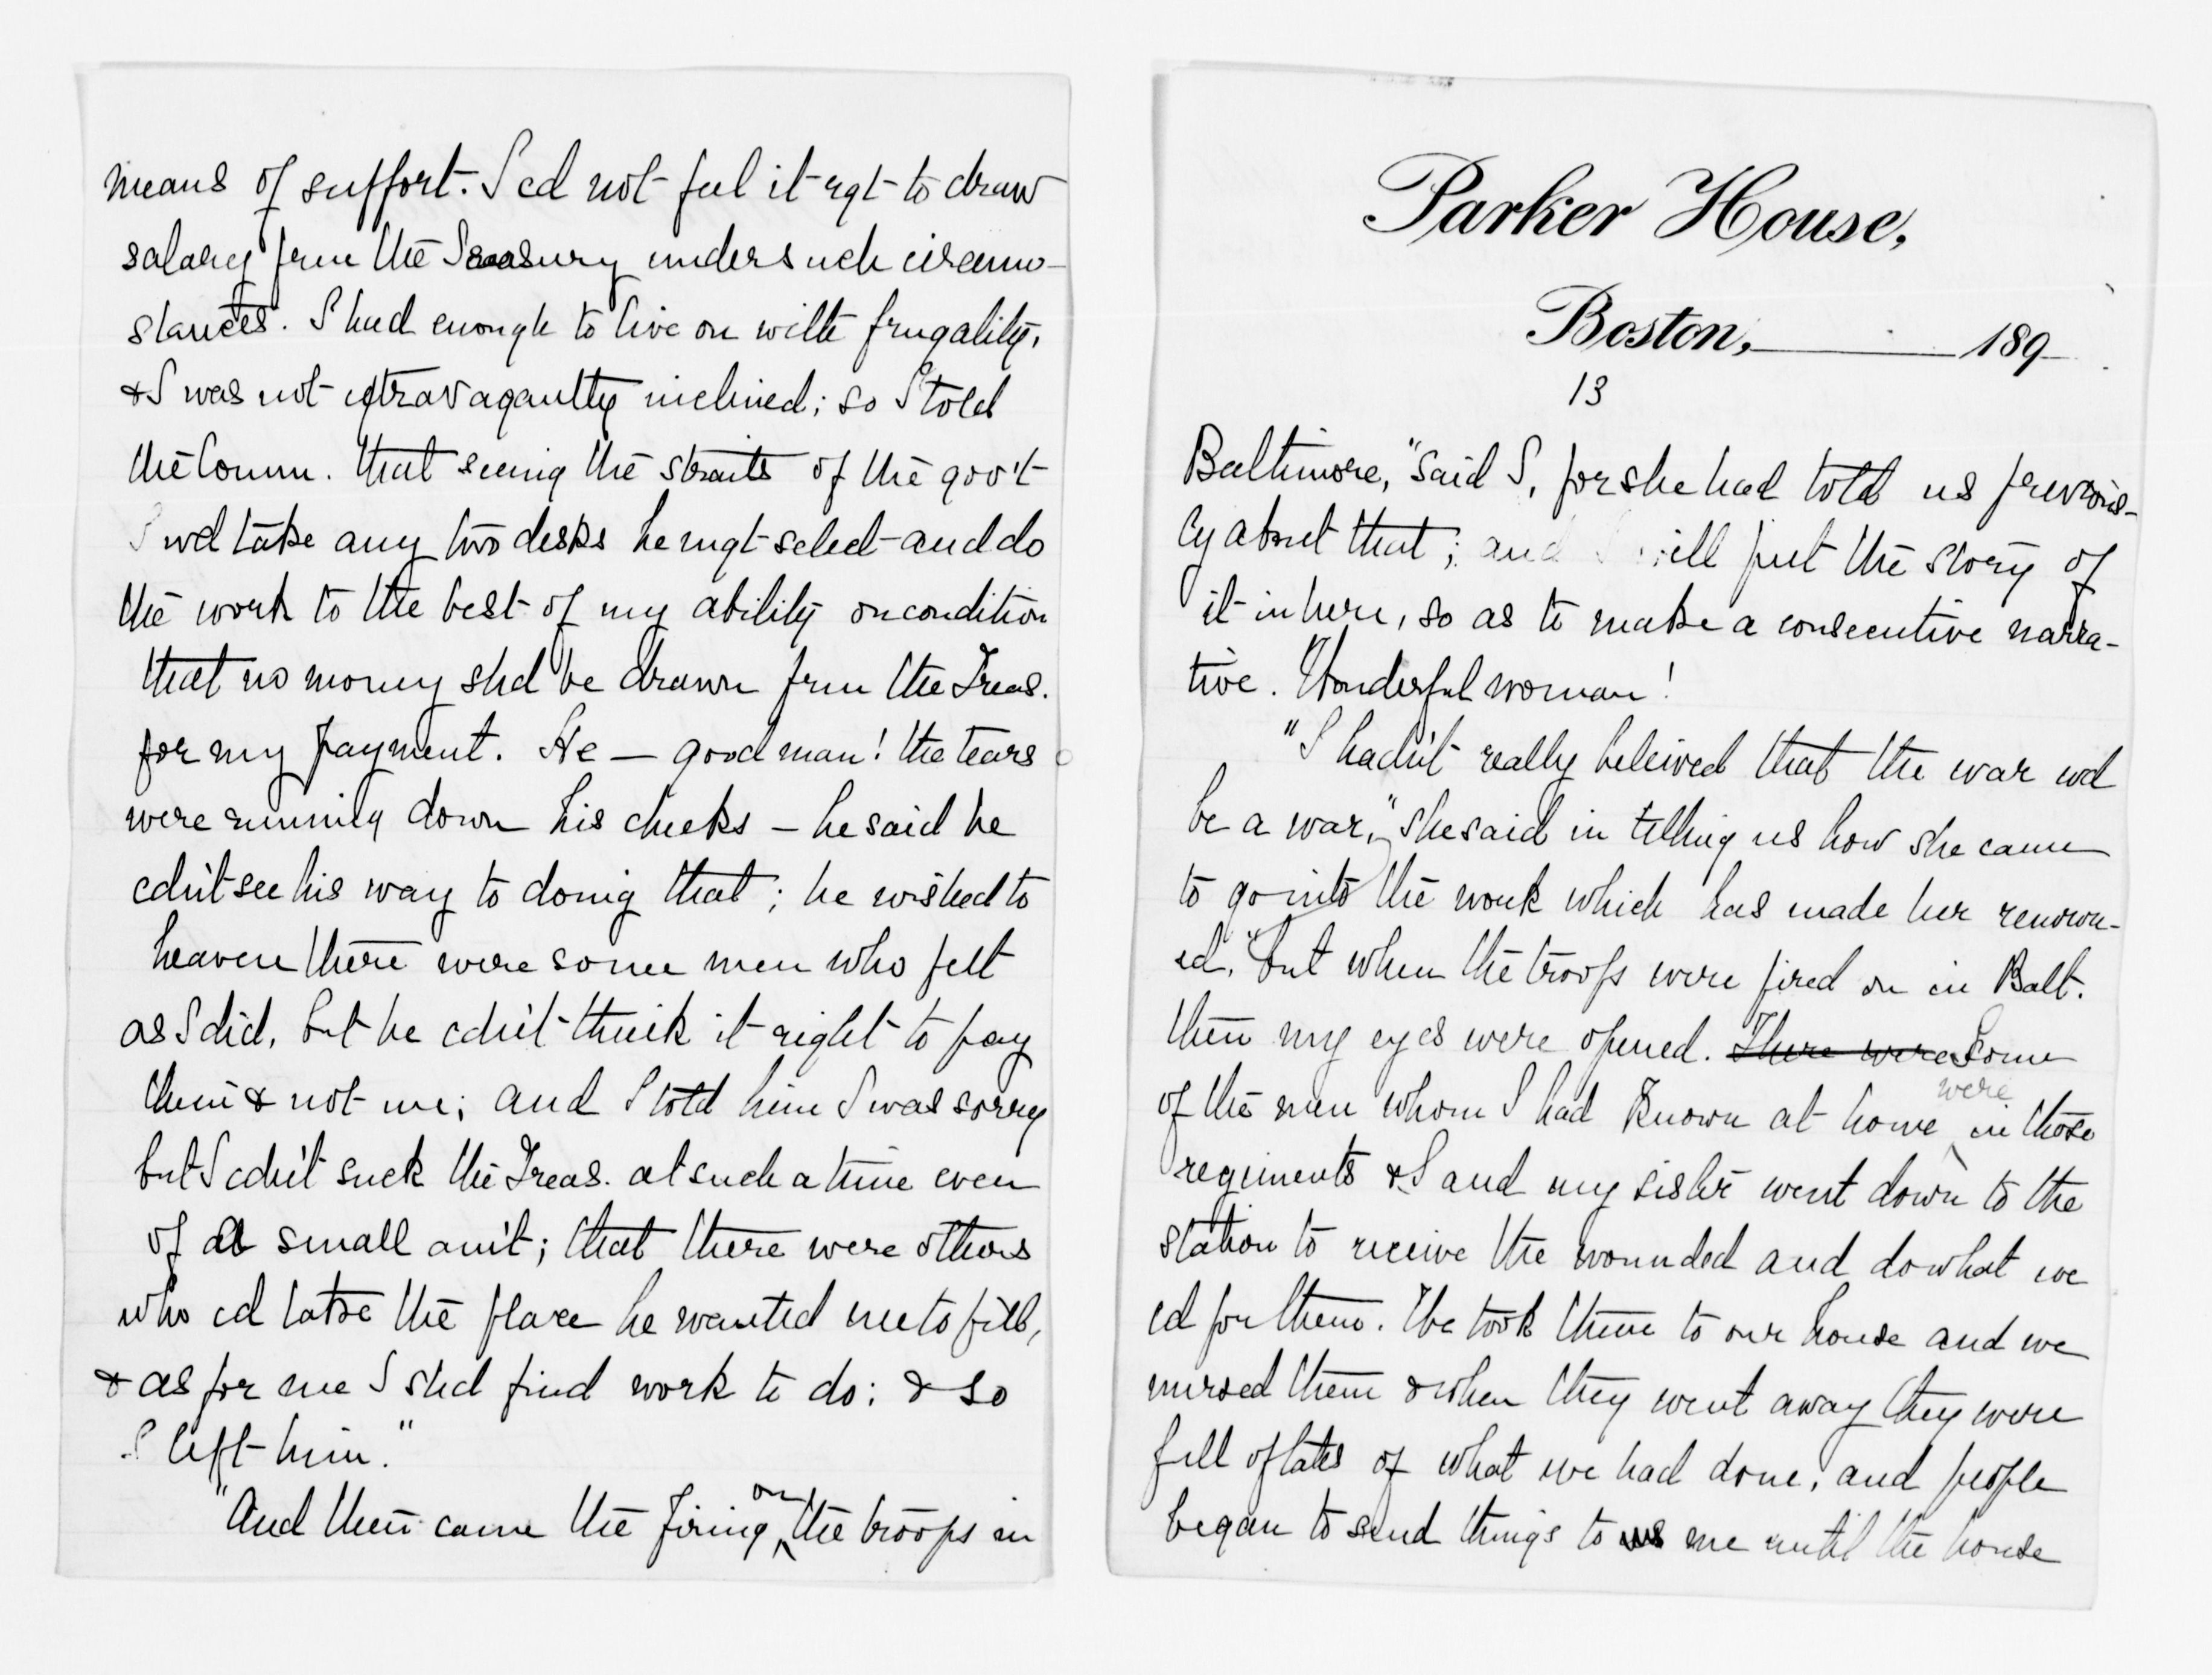 means of support. I cd not feel it rgt to draw
salary frm the Treasury under such circum-
stances. I had enough to live on with frugality,
& I was not extravagantly inclined; so I told
the Comm. that seeing the straits of the gov't
I wd take any two desks he mgt select and do
the work to the best of my ability on condition
that no money shd be drawn frm the Treas.
for my payment. He — good man! the tears
were running down his cheeks — he said he
cdn't see his way to doing that; he wished to
heaven there were some men who felt
as I did, but he cdn't think it right to pay
them & not me; and I told him I was sorry
but I cdn't suck the Treas. at such a time even
of a small am't; that there were others
who cd take the place he wanted me to fill,
& as for me I shd find work to do; & so
I left him."
"And then came the firing on the troops in
Parker House,
Boston, 189
13
Baltimore," said I, for she had told us previous-
ly about that; and I will put the story of
it in here, so as to make a consecutive narra-
tive. Wonderful woman!
"I hadn't really beleived that the war wd
be a war," she said in telling us how she came
to go into the work which has made her renown-
ed, "but when the troops were fired on in Balt.
then my eyes were opened. There were Some
of the men whom I had known at home were in those
regiments & I and my sister went down to the
station to receive the wounded and do what we
cd for them. We took them to our house and we
nursed them & when they went away they were
full of tales of what we had done, and people
began to send things to us me until the house